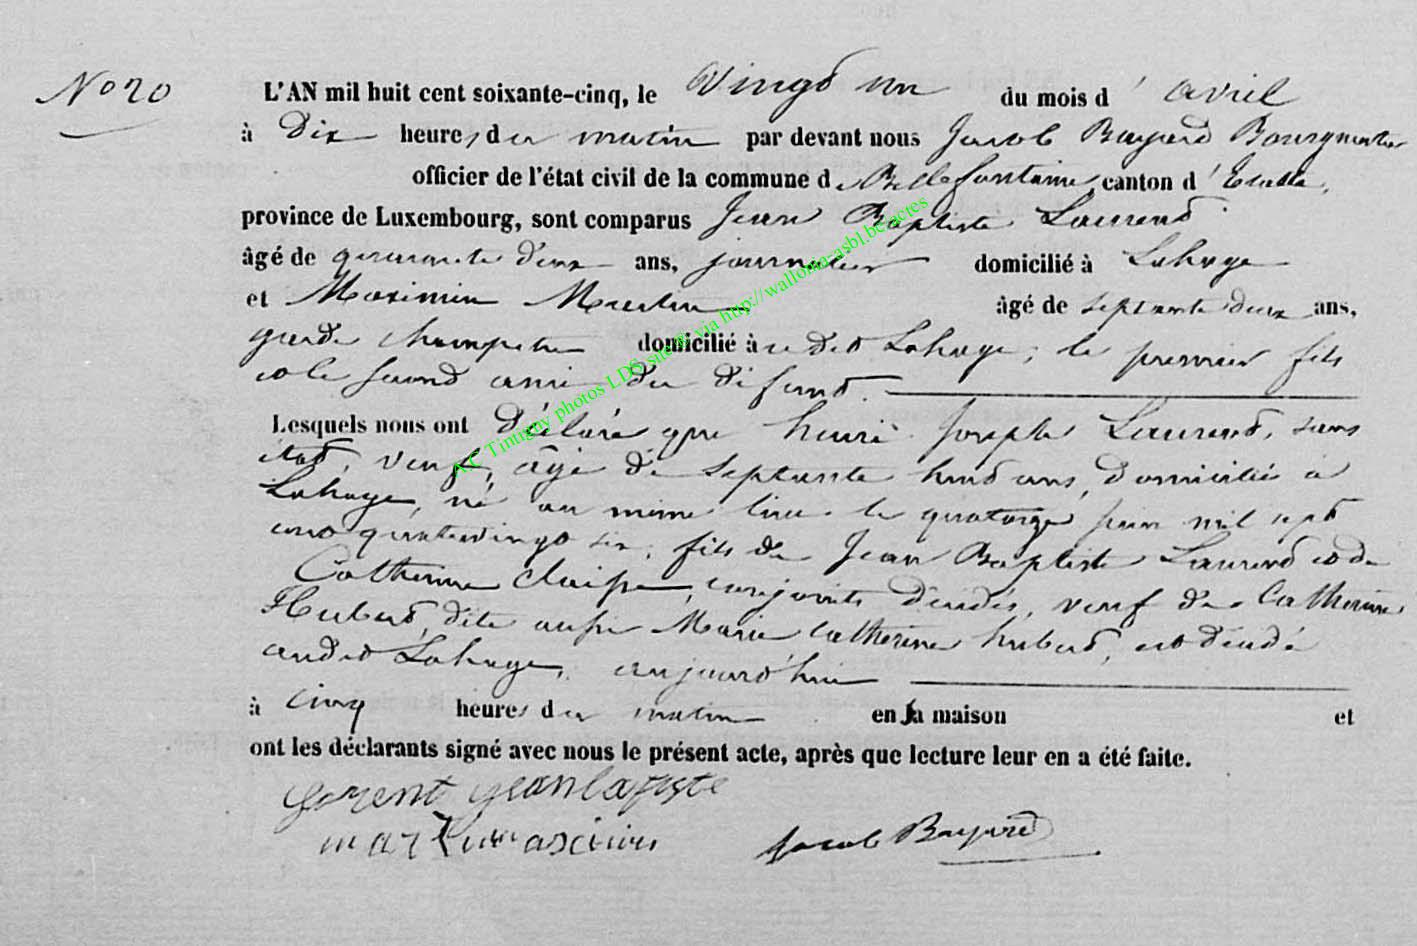 No 20
L'AN mil huit cent soixante-cinq, le Vingt un du mois d'avril
à Dix heures du matin par devant nous Jacob Bayard Bourgmestre
officier de l'état civil de la commune de Bellefontaine, canton d'Etalle,
province de Luxembourg, sont comparus Jean Baptiste Laurent
âgé de quarante deux ans, journalier domicilié à Lahage
et Maximin Martin âgé de septante deux ans,
garde champetre domicilié à u dit Lahage, le premier fils
et le second ami du défunt.
Lesquels nous ont Déclaré que henri Joseph Laurent, sans
état, veuf, âgé de septante huit ans, Domicilié à
Lahage, né au même lieu le quatorze juin mil sept
cent quatrevingt six, fils de Jean Baptiste Laurent et de
Catherine Claisse, conjoints décédés, veuf de Catherine
Hubert, dite aussi Marie Catherine hubert, est décédé
audit Lahage, aujourd'hui
à cinq heures du matin en sa maison et
ont les déclarants signé avec nous le présent acte, après que lecture leur en a été faite.
lorent jean batiste
martin Jacob Bayard
AC Tintigny photos LDS via http://wallonia-asbl.be/actes